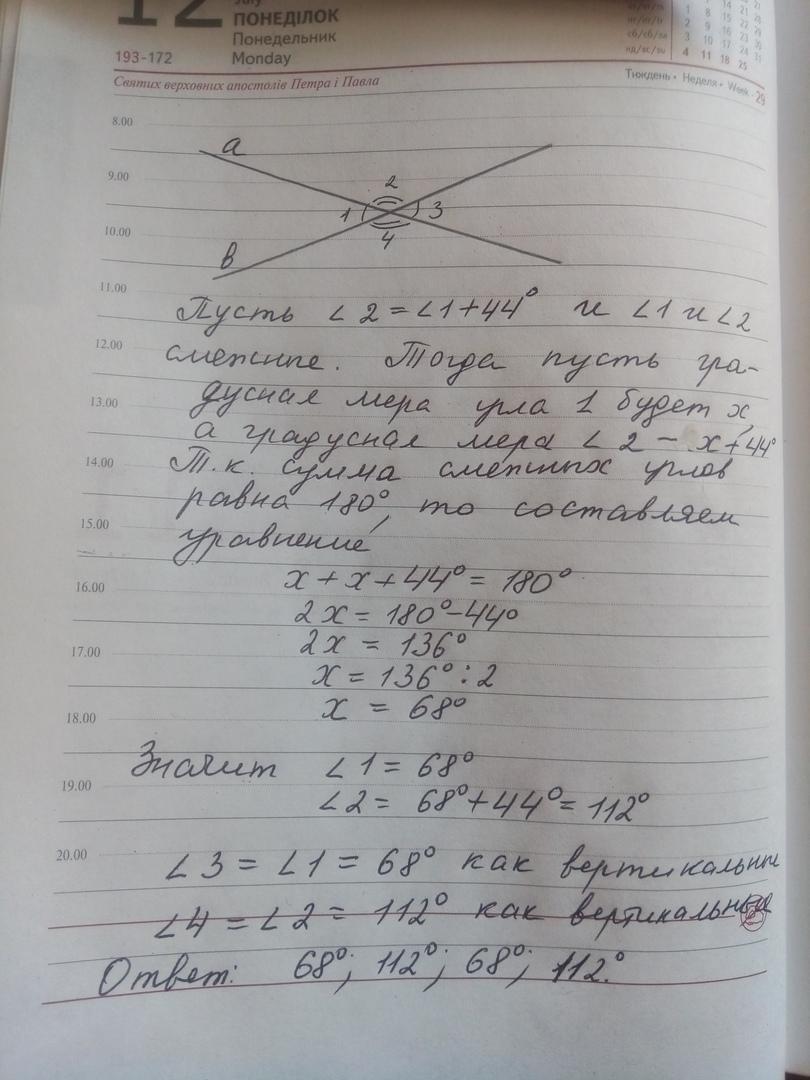 12
July
ПОНЕДІЛОК
Понедельник
Monday
193-172
Святих верховних апостолів Петра і Павла
Тиждень • Неделя • Week • 29
чт/чт/th
пт/пт/fr
сб/сб/sa
нд/вс/su
1 8
2 9 16 23
3 10 17 24
4 11 18 25
8.00
9.00
10.00
11.00
12.00
13.00
14.00
15.00
16.00
17.00
18.00
19.00
20.00
a
в
1
2
3
4
Пусть ∠2=∠1+44° и ∠1 и ∠2
смежные. Тогда пусть гра-
дусная мера угла 1 будет x
а градусная мера ∠2 – x+44°
Т.к. сумма смежных углов
равна 180°, то составляем
уравнение
x + x + 44° = 180°
2x = 180°-44°
2x = 136°
x = 136° : 2
x = 68°
Значит ∠1 = 68°
∠2 = 68°+44°= 112°
∠3 = ∠1 = 68° как вертикальные
∠4 = ∠2 = 112° как вертикальные
Ответ: 68°; 112°; 68°; 112.°